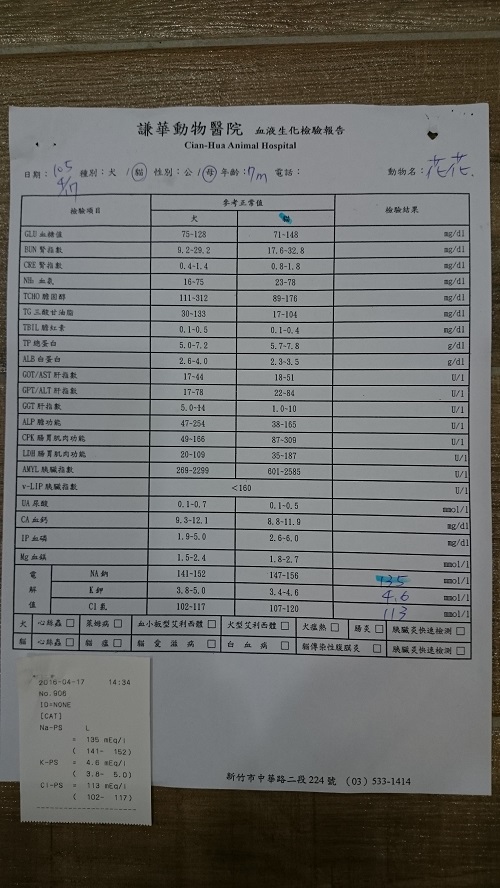 謙華動物醫院 血液生化檢驗報告
Cian-Hua Animal Hospital
日期：105 4/17 種別：犬 / 貓 性別：公 / 母 年齡：7m 電話： 動物名：花花
檢驗項目 參考正常值 檢驗結果
犬 貓
GLU 血糖值 75-128 71-148 mg/dl
BUN 腎指數 9.2-29.2 17.6-32.8 mg/dl
CRE 腎指數 0.4-1.4 0.8-1.8 mg/dl
NH₃ 血氨 16-75 23-78 mg/dl
TCHO 膽固醇 111-312 89-176 mg/dl
TG 三酸甘油脂 30-133 17-104 mg/dl
TBIL 膽紅素 0.1-0.5 0.1-0.4 mg/dl
TP 總蛋白 5.0-7.2 5.7-7.8 g/dl
ALB 白蛋白 2.6-4.0 2.3-3.5 g/dl
GOT/AST 肝指數 17-44 18-51 U/l
GPT/ALT 肝指數 17-78 22-84 U/l
GGT 肝指數 5.0-14 1.0-10 U/l
ALP 膽功能 47-254 38-165 U/l
CPK 腸胃肌肉功能 49-166 87-309 U/l
LDH 腸胃肌肉功能 20-109 35-187 U/l
AMYL 胰臟指數 269-2299 601-2585 U/l
v-LIP 胰臟指數 <160 U/l
UA 尿酸 0.1-0.7 0.1-0.5 mmol/l
CA 血鈣 9.3-12.1 8.8-11.9 mg/dl
IP 血磷 1.9-5.0 2.6-6.0 mg/dl
Mg 血鎂 1.5-2.4 1.8-2.7 mmol/l
電解值 NA 鈉 141-152 147-156 135 mmol/l
K 鉀 3.8-5.0 3.4-4.6 4.6 mmol/l
Cl 氯 102-117 107-120 113 mmol/l
犬 心絲蟲 □ 萊姆病 □ 血小板型艾利西體 □ 犬型艾利西體 □ 犬瘟熱 □ 腸炎 □ 胰臟炎快速檢測 □
貓 心絲蟲 □ 貓瘟 □ 貓愛滋病 □ 白血病 □ 貓傳染性腹膜炎 □ 胰臟炎快速檢測 □
2016-04-17 14:34
No.906
ID=NONE
[CAT]
Na-PS L
= 135 mEq/l
( 141- 152)
K-PS = 4.6 mEq/l
( 3.8- 5.0)
Cl-PS = 113 mEq/l
( 102- 117)
新竹市中華路二段 224 號 (03) 533-1414